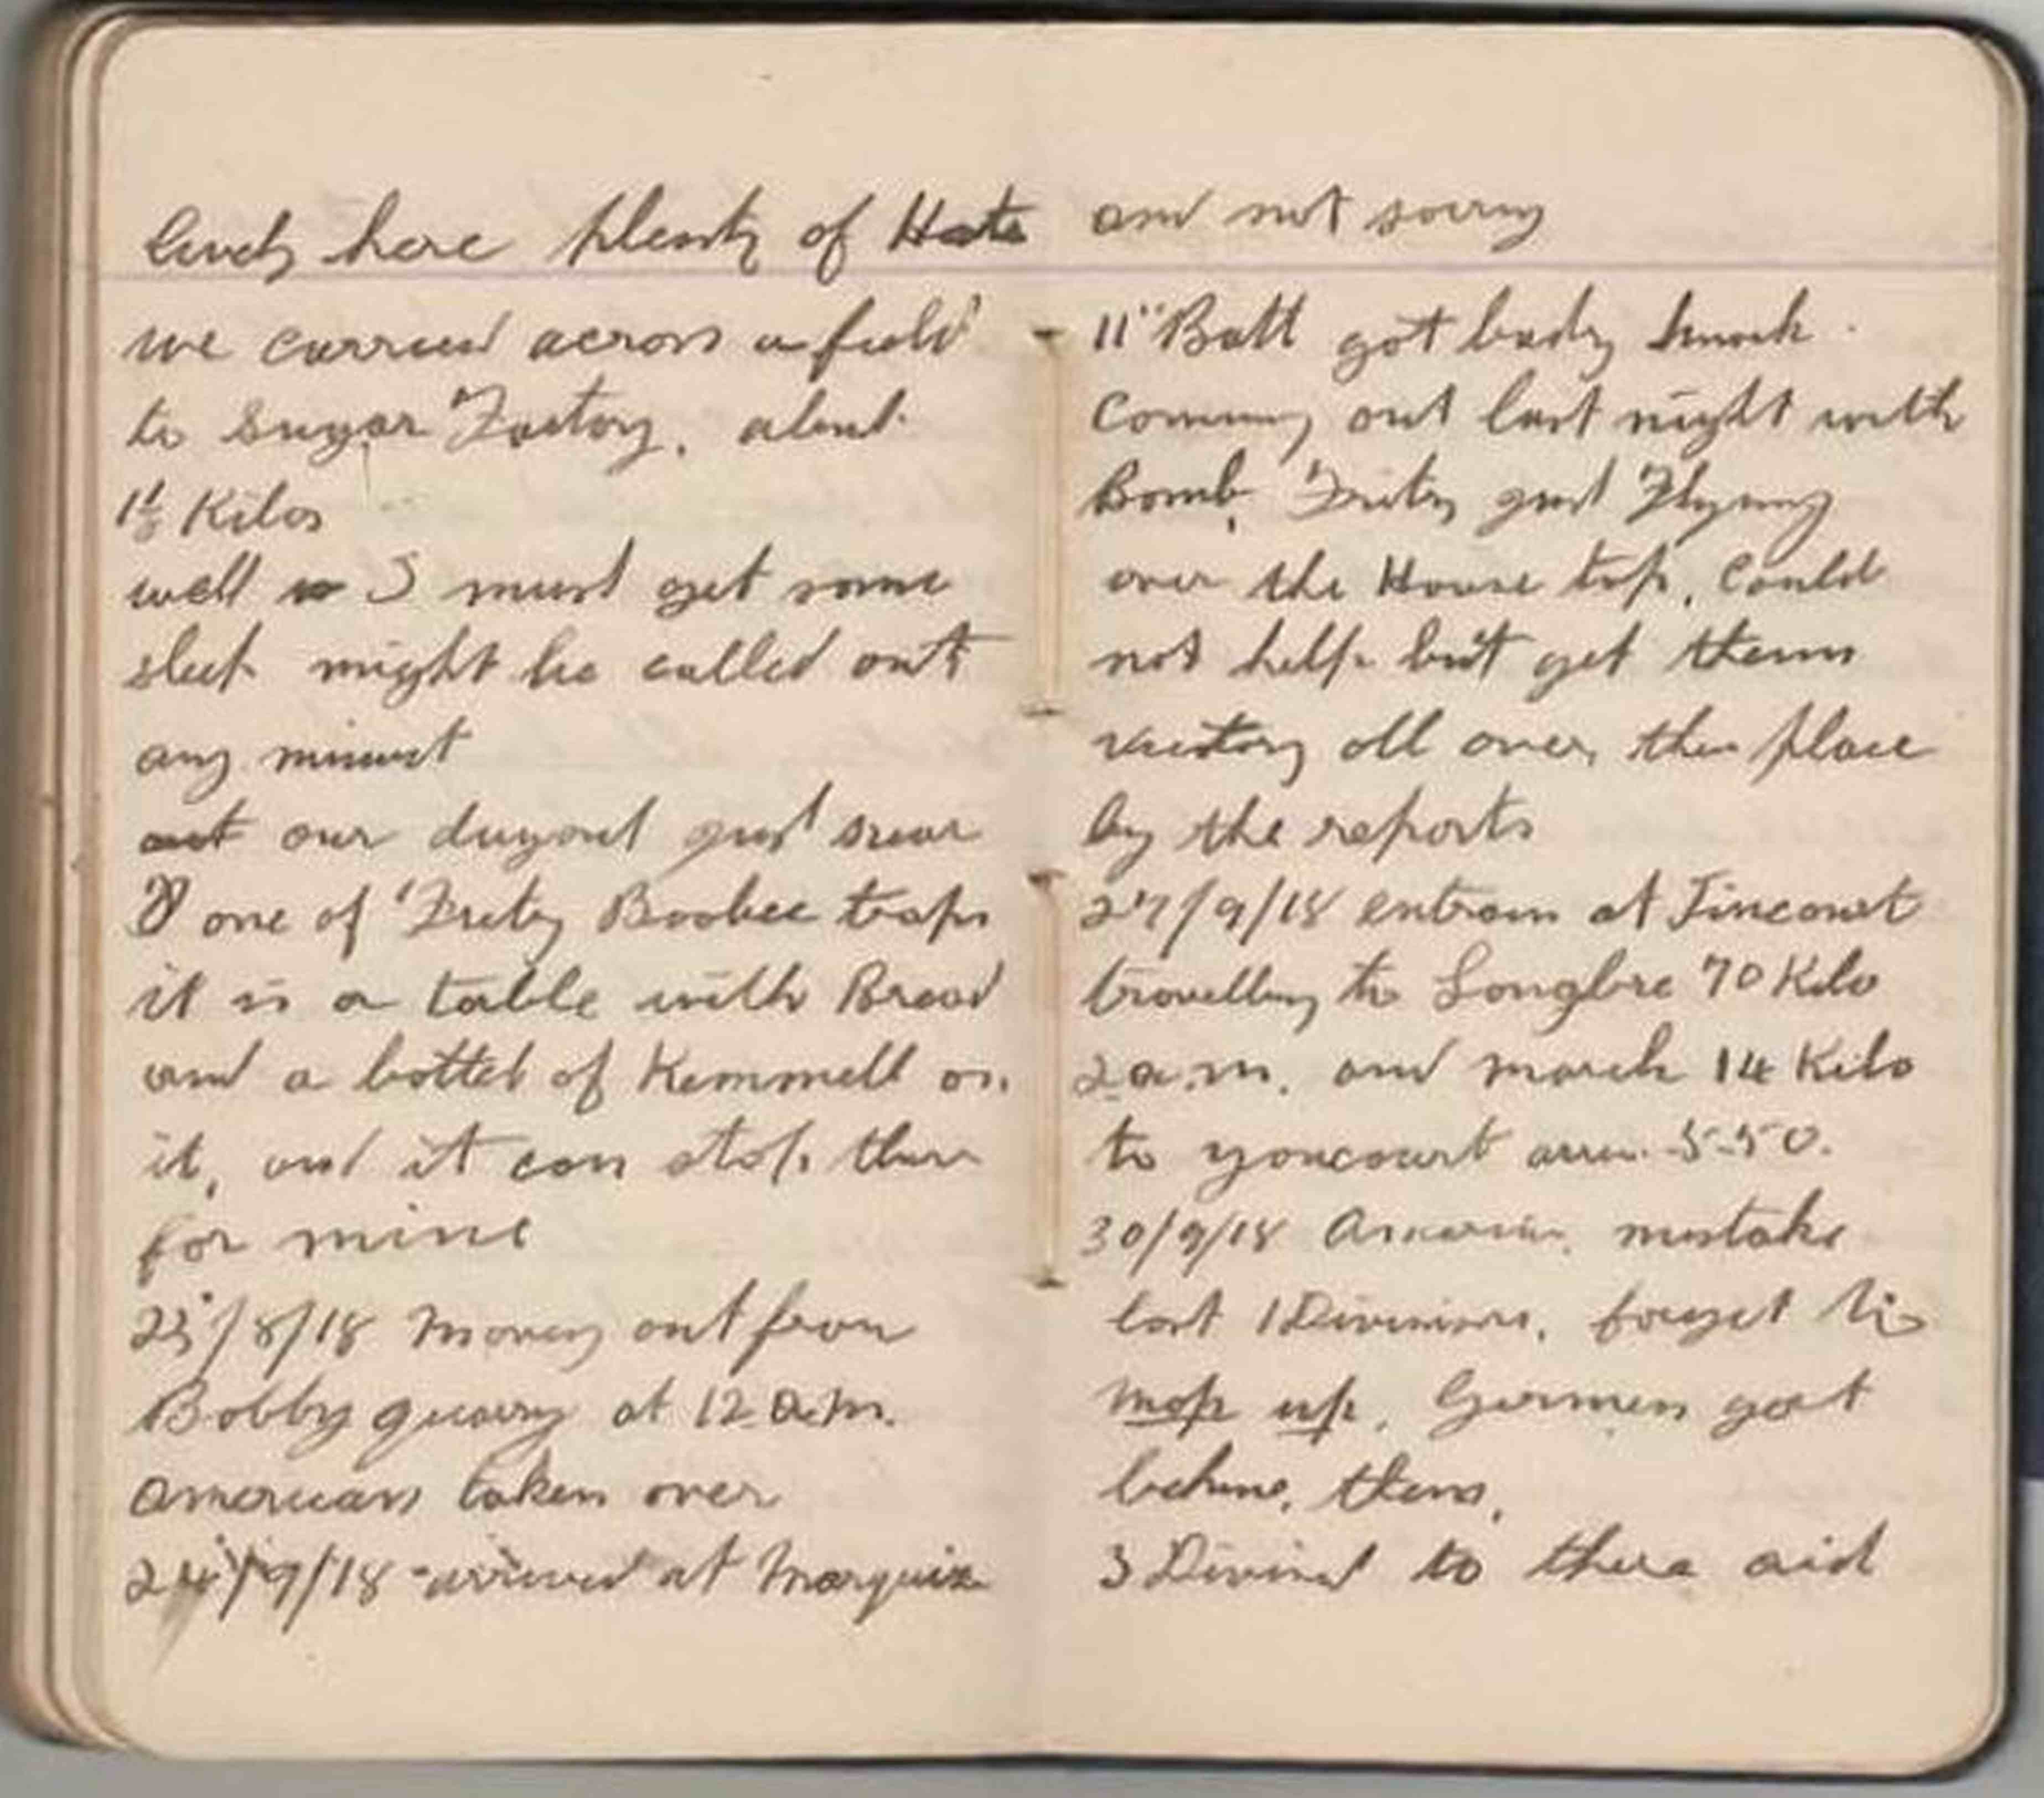 lively here plenty of Hate
we carried across a field
to Sugar Factory. about
1½ Kilos
well I must get some
sleep might be called out
any minuet
out our dugout just near
is one of Fritz Boobee traps
it is a table with Bread
and a bottel of Kemmell on
it, and it can stop there
for mine
23/8/18 Moveing out from
Bobby quarry at 12 a.m.
Americans taken over
24/9/18 arrived at Marquix
and not sorry
11" Batt got badly knock
Comming out last night with
Bomb, Fritz just Flying
over the House top, Could
not help but get them
victory all over the place
by the reports
27/9/18 entrain at Tincourt
travelling to Longbre 70 Kilo
2 a.m. and march 14 Kilo
to youcourt arriv. 5-50.
30/9/18 mistake
lost 1 Divinion, forget to
mop up, Germen got
behine, them,
3 Divind to there aid